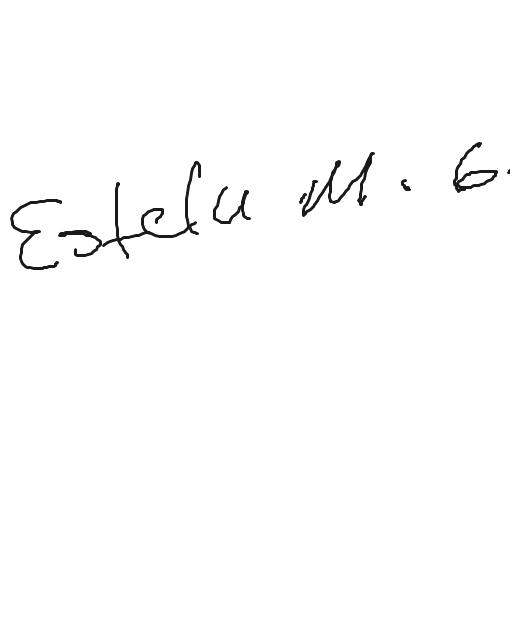 Estela M. G.